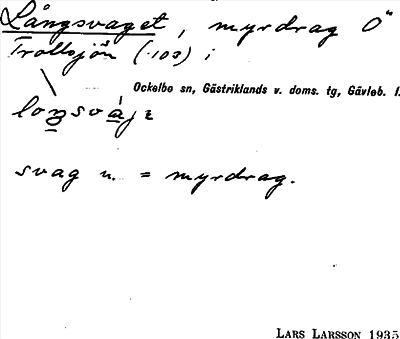 Långsvaget, myrdrag Ö"
Trollsjön (.103) i
Ockelbo sn, Gästriklands v. doms. tg, Gävleb. l.
svag n. = myrdrag.
LARS LARSSON 1935